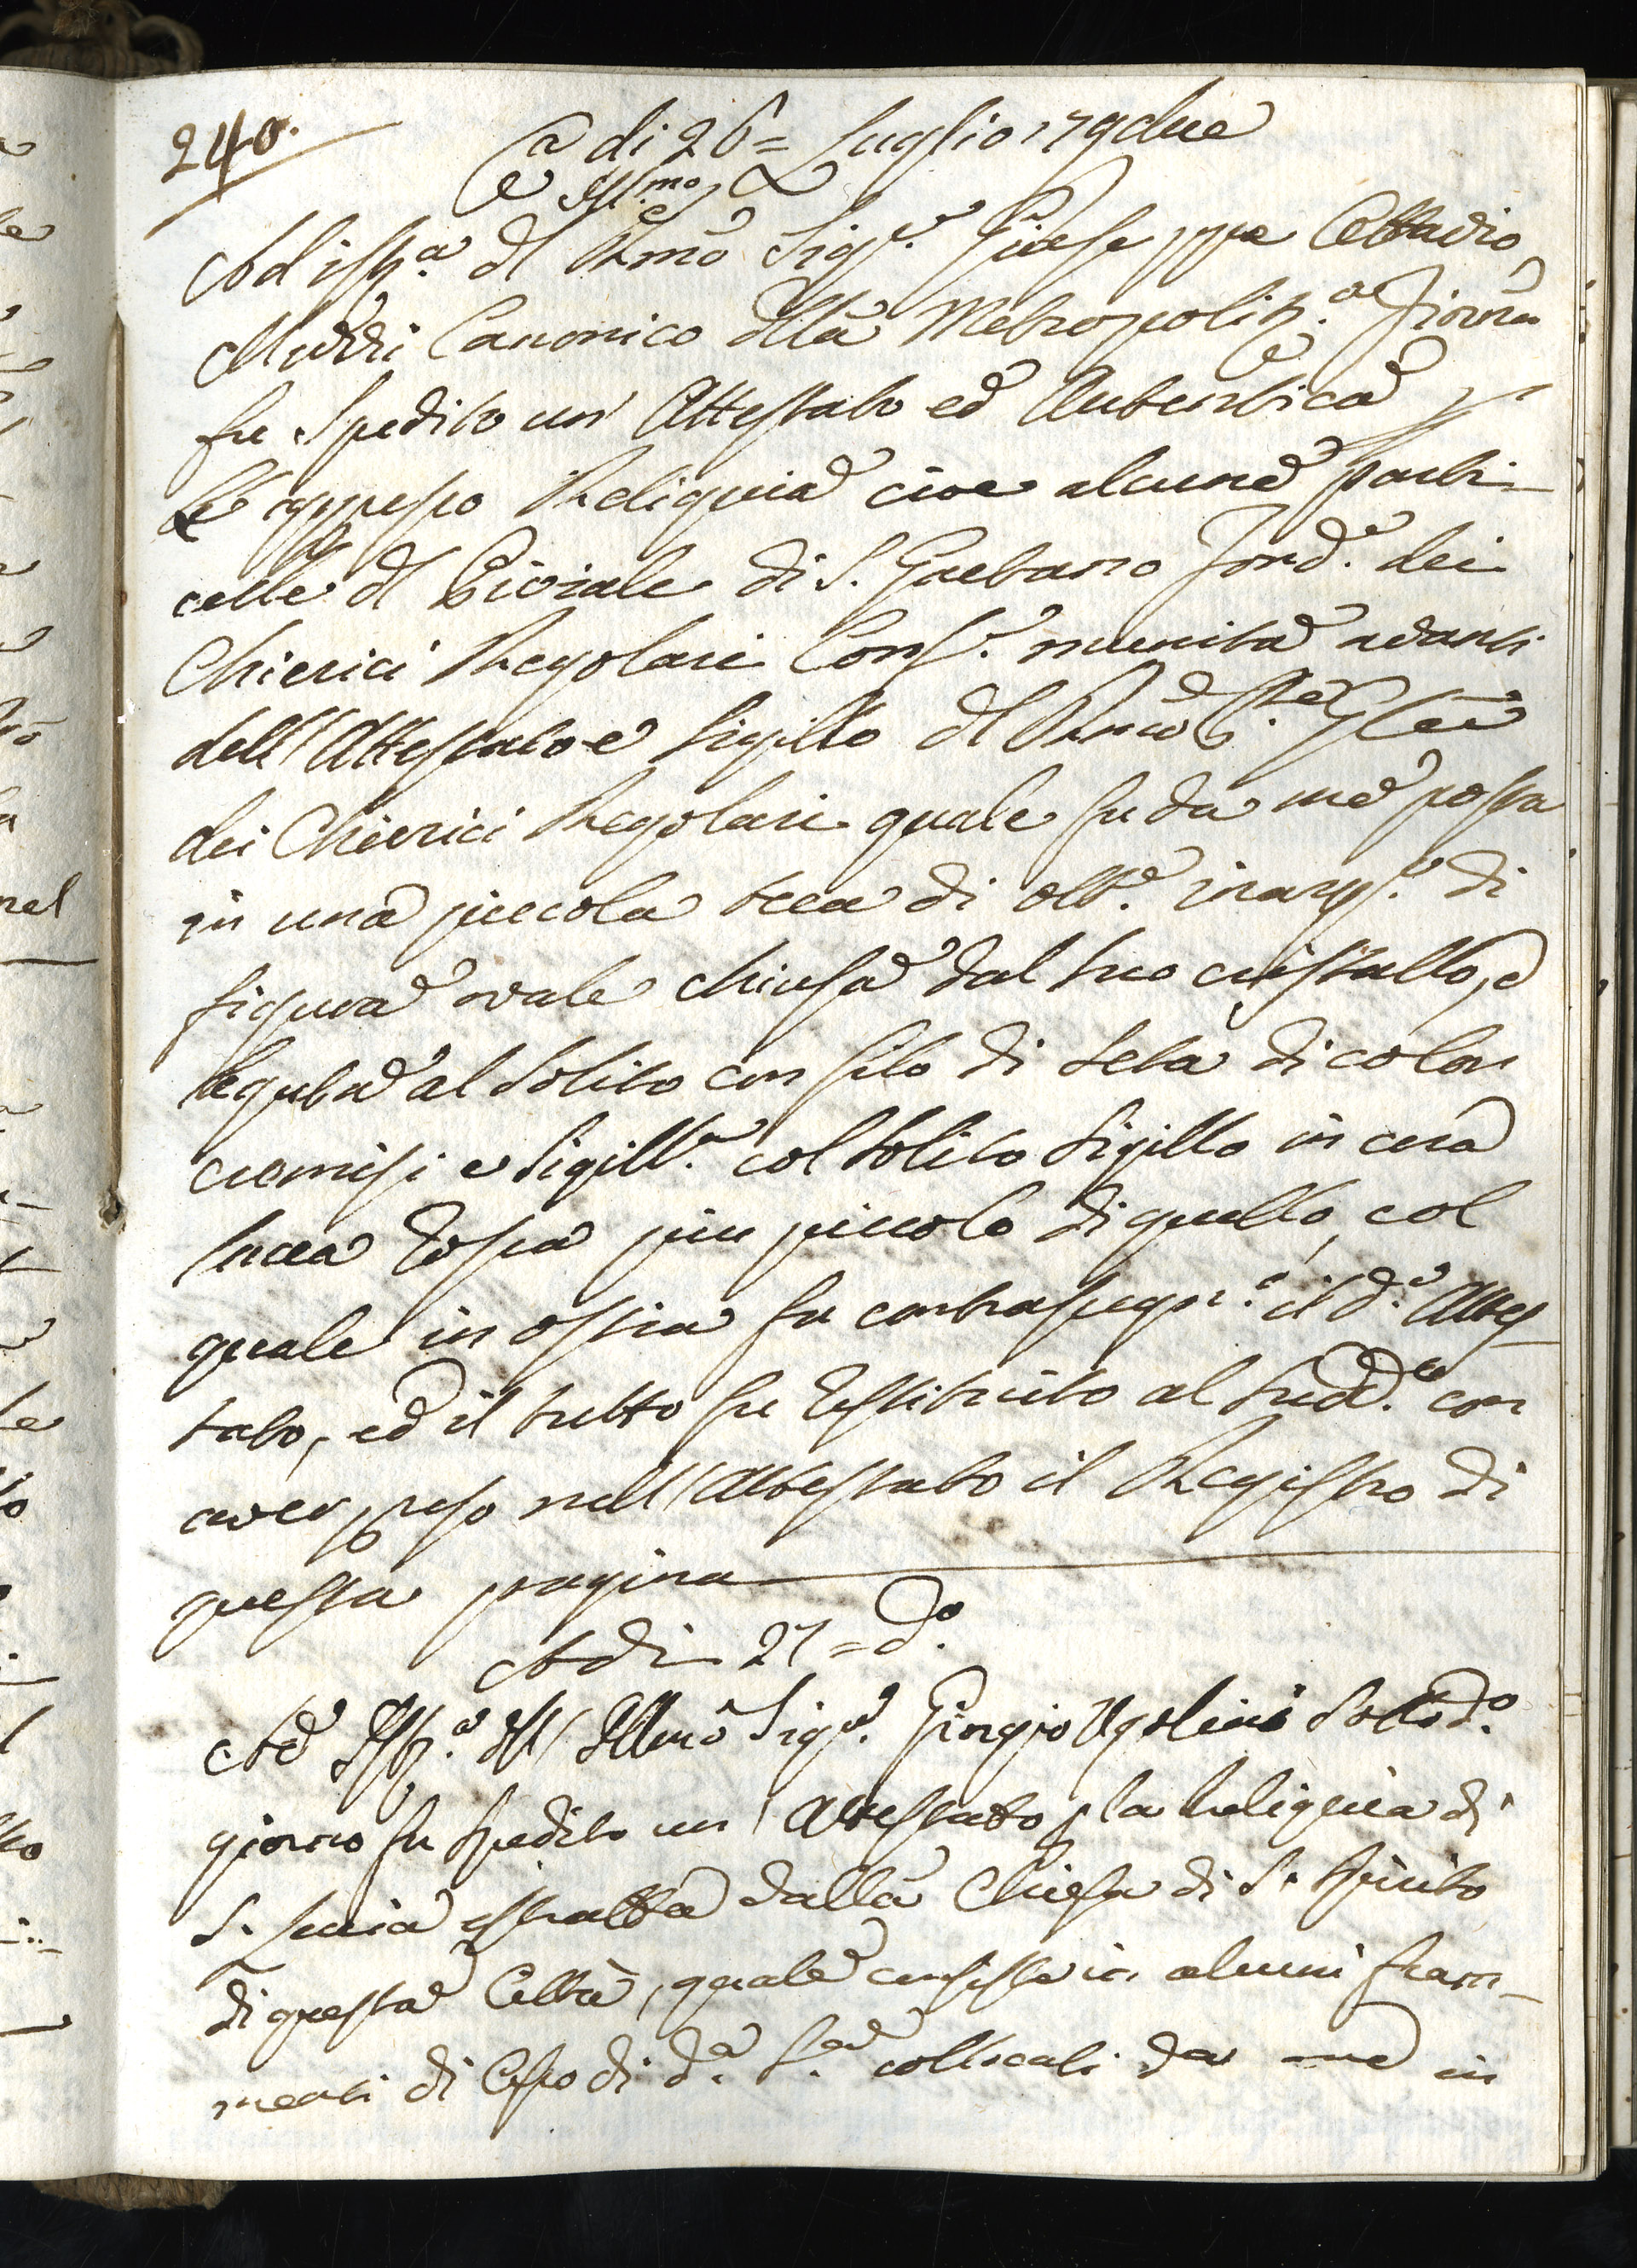 240.
A di 26= Luglio 179due
e Ill.mo
Ad ist.a dl Rmo Sig.e Giuseppe Attavio
Muzzi Canonico dlla Metropolit.a Fiorna
fu spedito un' Attestato ed Autentica p
le appresso Reliquia cioe alcune parti-
celle dl Piviale di S. Gaetano Fond.e dei
Chierici Regolari Conf.e munita avanti
dell'Attestato e Sigillo dl Rmo P.re Gle
dei Chierici Regolari quale fu da me posta
in una piccola teca di ott.e inarg.o di
figura ovale chiusa dal suo cristallo, e
legata al solito con filo di seta di color
cremisi e sigill.a col solito sigillo in cera
lacca rossa piu piccolo di quello, col
quale in ostia fu contrasegn.o il d.o Attes
tato, ed il tutto fu restituito al sud.to con
aver preso nell'Attestato il Registro di
questa pagina
Adi 27= d.o
Ad Ist.a dll' Illmo Sig.e Giorgio Ugolini sotto d.o
giorno fu spedito un' Attestatto p la Reliquia di
S. Lucia estratta dalla Chiesa di S. Spirito
di questa Città, quale consiste in alcuni fram-
menti di Osso di d.a S.a collocati da me in